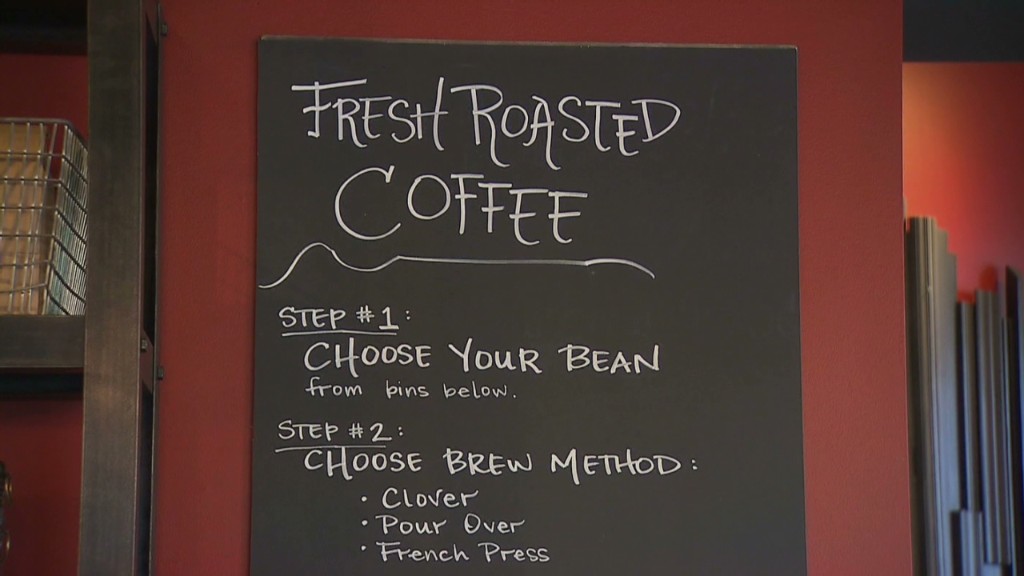 FRESH ROASTED
COFFEE
STEP #1:
CHOOSE YOUR BEAN
from bins below.
STEP #2:
CHOOSE BREW METHOD:
• Clover
• Pour Over
• French Press